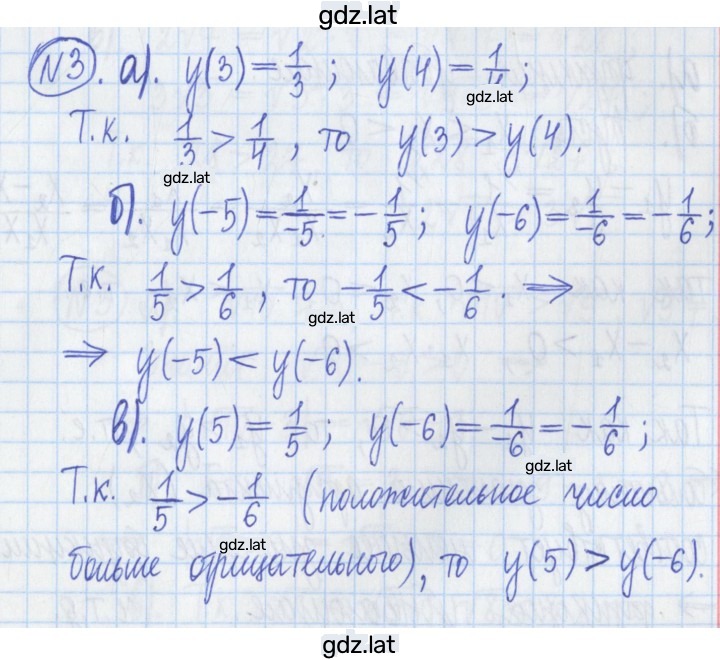 gdz.lat
№3. а). y(3) = 1/3; y(4) = 1/4;
gdz.lat
Т.к. 1/3 > 1/4, то y(3) > y(4).
gdz.lat
б). y(-5) = 1/-5 = -1/5; y(-6) = 1/-6 = -1/6;
Т.к. 1/5 > 1/6, то -1/5 < -1/6. ⇒
gdz.lat
⇒ y(-5) < y(-6).
в). y(5) = 1/5; y(-6) = 1/-6 = -1/6;
gdz.lat
Т.к. 1/5 > -1/6 (положительное число
gdz.lat
больше отрицательного), то y(5) > y(-6).
gdz.lat